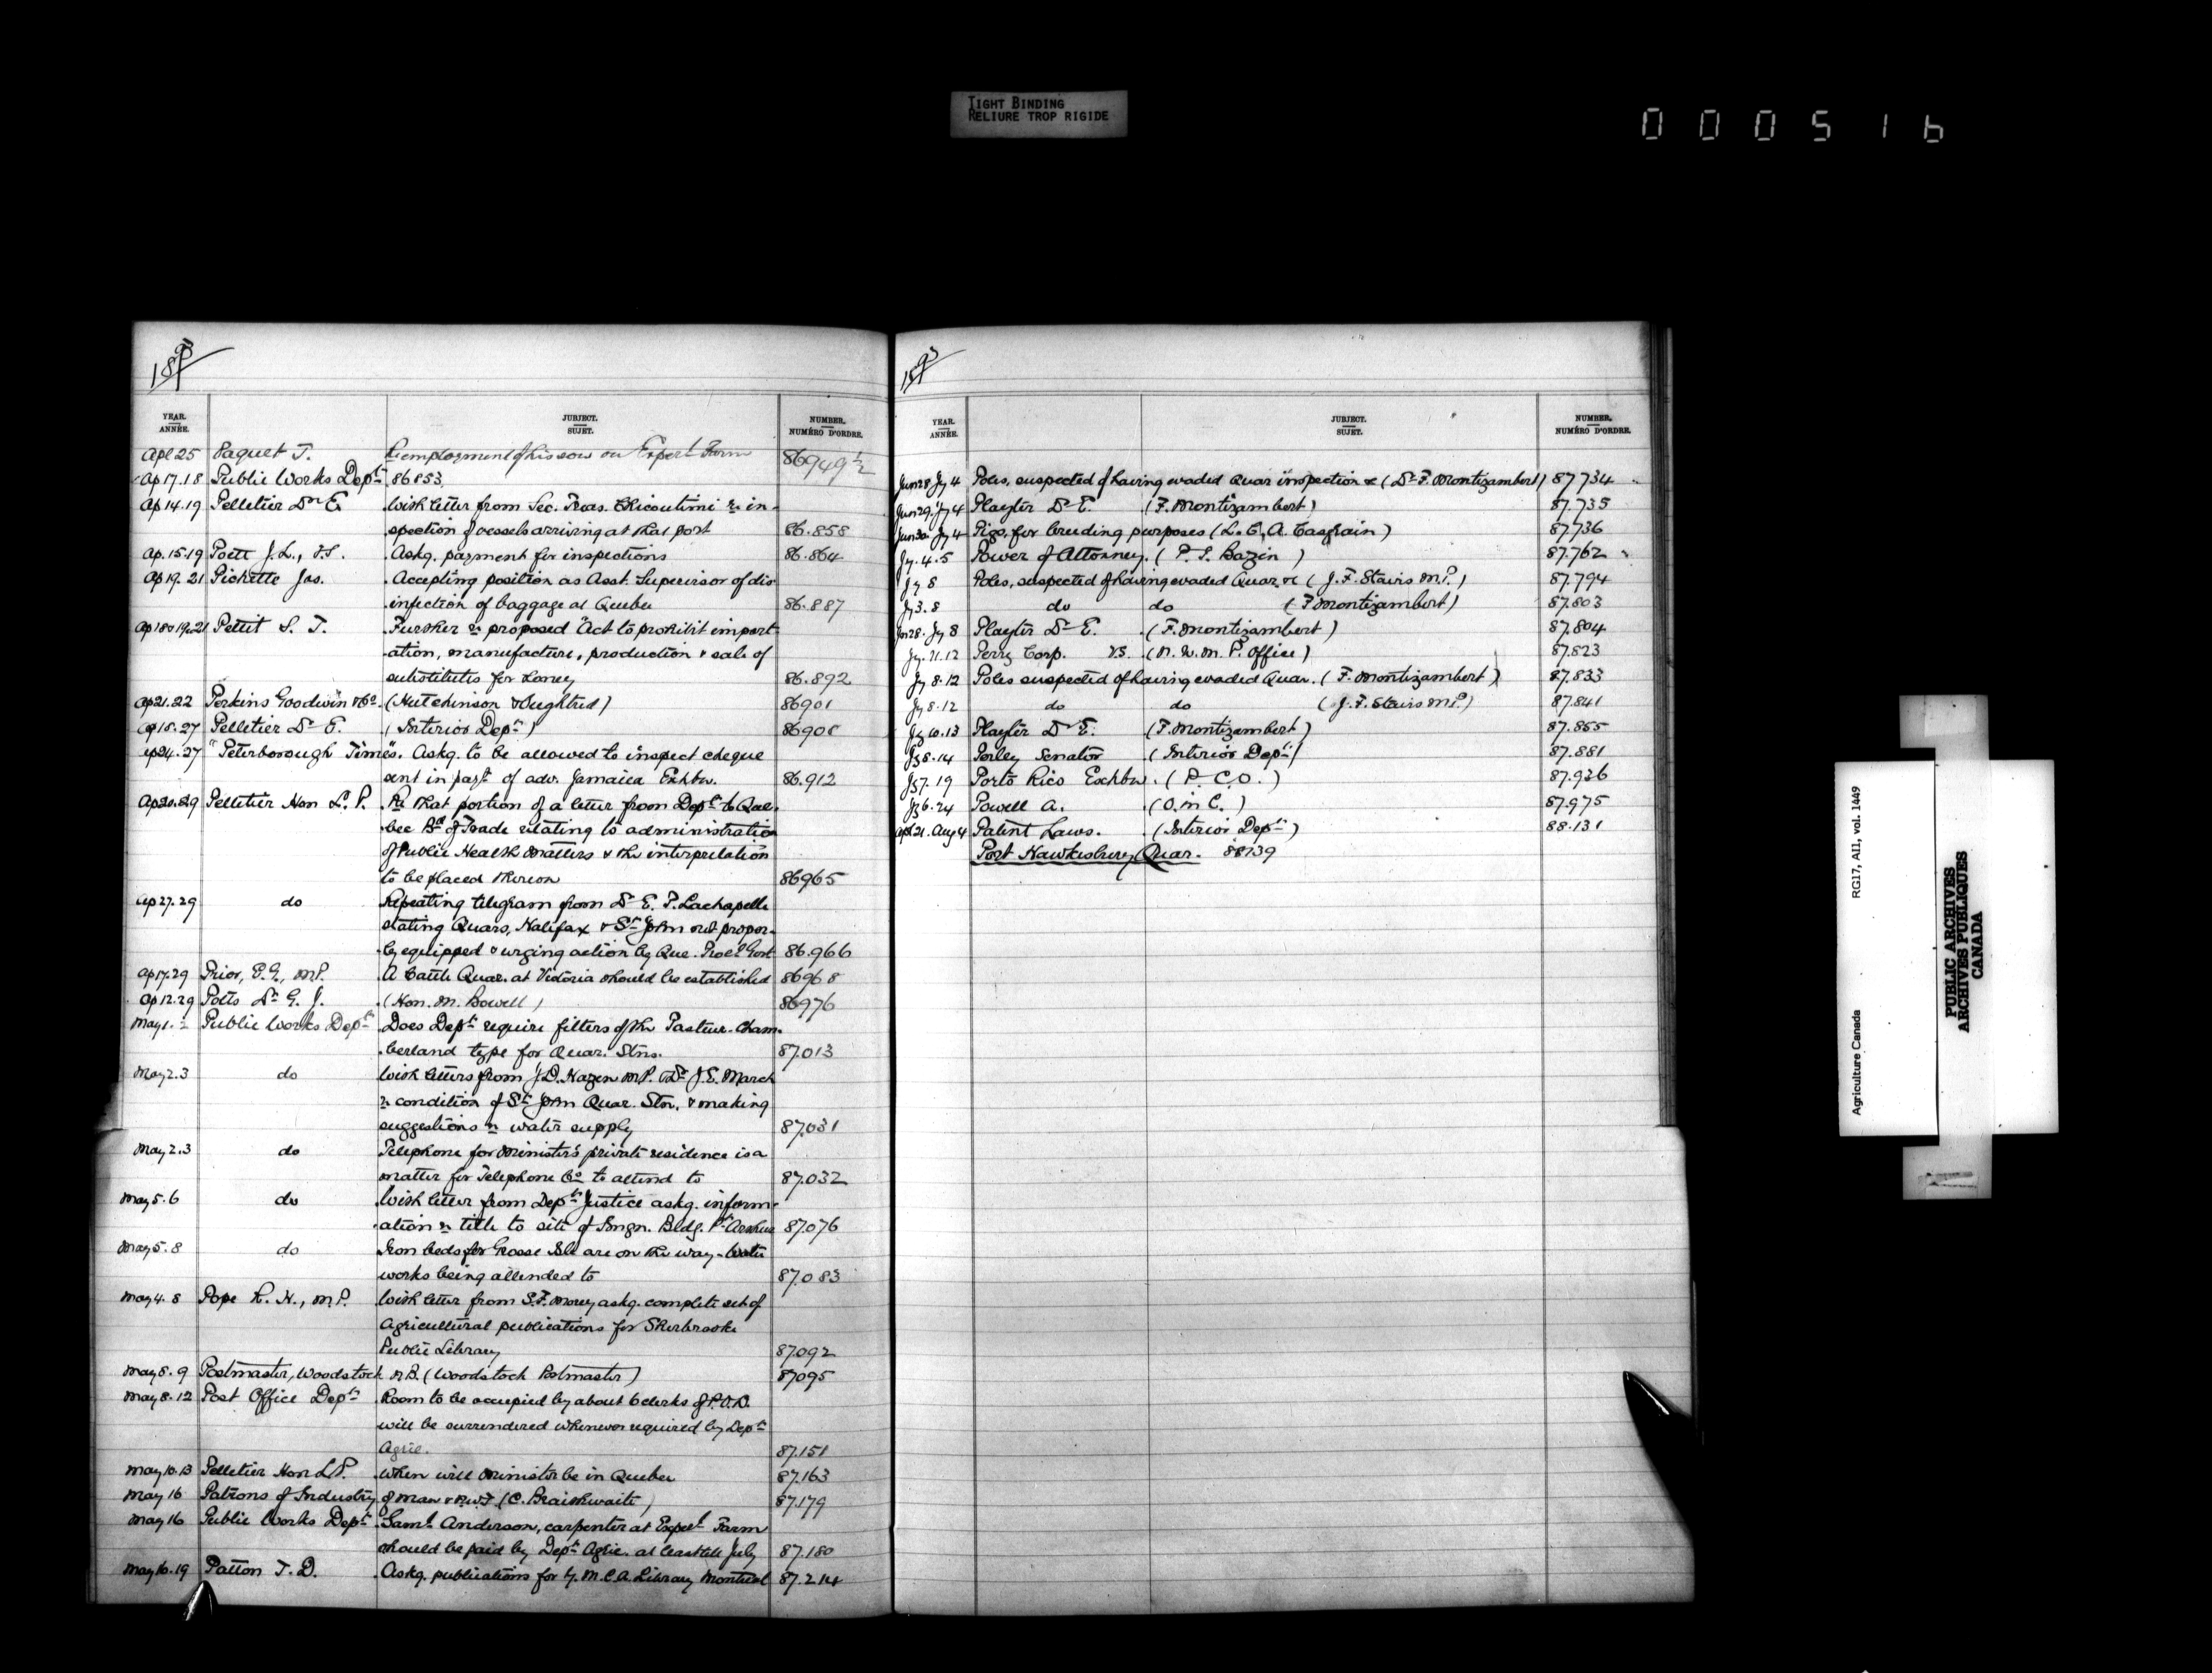 TIGHT BINDING
RELIURE TROP RIGIDE
000516
1893
YEAR. ANNÉE. SUBJECT. SUJET. NUMBER. NUMÉRO D'ORDRE.
Apl 25 Paquet T. Re employment of his son on Experl Farm 86949½
Ap 17.18 Public Works Dept 86853
Ap 14.19 Pelletier Dr E. With letter from Sec. Treas. Chicoutimi re in-
spection of vessels arriving at that port 86.858
Ap. 15.19 Poett J.L., V.S. Askg. payment for inspections 86.864
Ap 19.21 Pichette Jas. Accepting position as Asst. Supervisor of dis-
infection of baggage at Quebec 86.887
Ap 18&19.21 Pettit S. T. Further re proposed "Act to prohibit import-
ation, manufacture, production & sale of
substitutes for honey 86.892
Ap 21.22 Perkins Goodwin & Co. (Hutchinson & Oughtred) 86901
Ap 18.27 Pelletier Dr E. (Interior Dept) 86908
Ap 24.27 "Peterborough Times". Askg. to be allowed to inspect cheque
sent in payt of adv. Jamaica Exhbn. 86.912
Ap 20.29 Pelletier Hon L. P. Re that portion of a letter from Dept to Que-
bec Bd of Trade relating to administration
of Public Health Matters & the interpretation
to be placed thereon 86965
Ap 27.29 do Repeating telegram from Dr E. P. Lachapelle
stating Quars, Halifax & St John not proper-
ly equipped & urging action by Que. Provl Govt 86.966
Ap 17.29 Prior, E.G., M.P. A Cattle Quar. at Victoria should be established 86968
Ap 12.29 Potts Dr G. J. (Hon. M. Bowell) 86976
May 1.2 Public Works Dept Does Dept require filters of the Pasteur-Cham-
berland type for Quar. Stns. 87.013
May 2.3 do With letters from J.D. Hazen M.P. & Dr J.E. March
re condition of St John Quar. Stn. & making
suggestions re water supply 87.031
May 2.3 do Telephone for Minister's private residence is a
matter for Telephone Co to attend to 87.032
May 5.6 do With letter from Dept Justice askg. inform-
ation re title to site of Imgn. Bldg. Pt Arthur 87.076
May 5.8 do Iron beds for Grosse Isle are on the way - Water
works being attended to 87.083
May 4.8 Pope R. H., M.P. With letter from S.F. Morey askg. complete set of
Agricultural publications for Sherbrooke
Public Library 87.092
May 8.9 Postmaster, Woodstock N.B. (Woodstock Postmaster) 87095
May 8.12 Post Office Dept Room to be occupied by about 6 clerks of P.O.D.
will be surrendered whenever required by Dept
Agric. 87.151
May 10.13 Pelletier Hon L.P. When will Minister be in Quebec 87.163
May 16 Patrons of Industry of Man & N.W.T. (C. Braithwaite) 87.179
May 16 Public Works Dept Saml Anderson, carpenter at Experl Farm
should be paid by Dept Agric. at least till July 87.180
May 16.19 Patton T. D. Askg. publications for Y.M.C.A. Library Montreal 87.214
1893
YEAR. ANNÉE. SUBJECT. SUJET. NUMBER. NUMÉRO D'ORDRE.
Jun 28. Jy 4 Poles, suspected of having evaded Quar inspection &c (Dr F. Montizambert) 87734
Jun 29. Jy 4 Playter Dr E. (F. Montizambert) 87.735
Jun 30. Jy 4 Pigs for breeding purposes (L. E. A. Casgrain) 87.736
Jy. 4.5 Power of Attorney. (P. S. Bazin) 87.762
Jy 8 Poles, suspected of having evaded Quar &c (J. F. Stairs M.P.) 87.794
Jy 3.8 do do (F Montizambert) 87.803
Jun 28. Jy 8 Playter Dr E. (F. Montizambert) 87.804
Jy. 11.12 Perry Corp. vs. (N. W. M. P. Office) 87.823
Jy 8.12 Poles suspected of having evaded Quar. (F. Montizambert) 87.833
Jy 8.12 do do (J. F. Stairs M.P.) 87.841
Jy 10.13 Playter Dr E. (F. Montizambert) 87.855
Jy 8.14 Perley Senator (Interior Dept) 87.881
Jy 7.19 Porto Rico Exhbn. (P. C. O.) 87.926
Jy 6.24 Powell A. (O. in C.) 87.975
Apl 21. Aug 4 Patent Laws. (Interior Dept) 88.131
Port Hawkesbury Quar. 88139
Agriculture Canada RG17, AI1, vol. 1449
PUBLIC ARCHIVES
ARCHIVES PUBLIQUES
CANADA